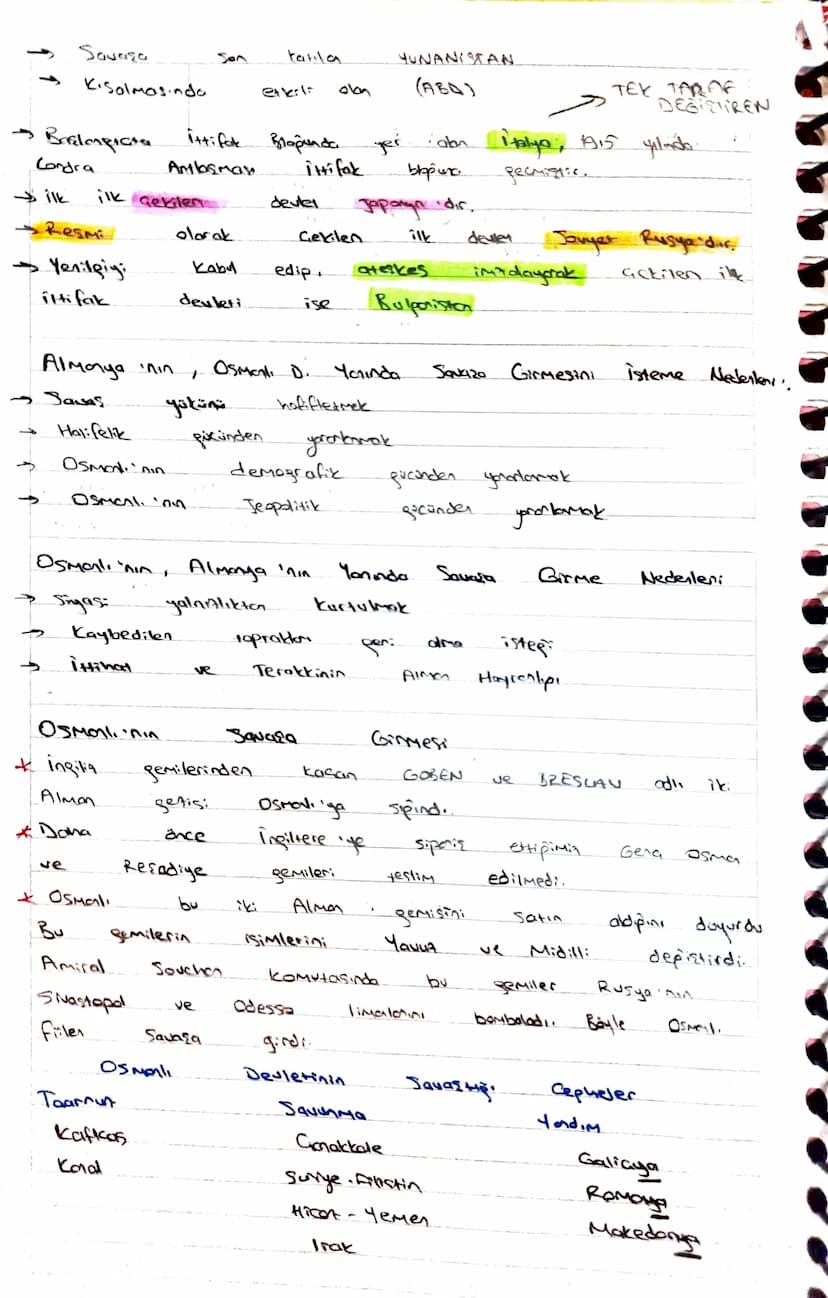 → Savaşa son katılan YUNANİSTAN
→ Kısalmasında etkili olan (ABD)
→ TEK TARAF DEĞİŞTİREN
→ Başlangıçta İttifak Bloğunda yer alan İtalya, 1915 yılında
Londra Antlaşması İttifak bloğuna geçmiştir.
→ ilk ilk Çekilen devlet Japonya'dır.
→ Resmi olarak Çekilen ilk devlet Sovyet Rusya'dır.
→ Yenilgiyi kabul edip, ateşkes imzalayarak çekilen ilk
ittifak devleti ise Bulgaristan
Almanya'nın, Osmanlı D. Yanında Savaşa Girmesini İsteme Nedenleri:
→ Savaş yükünü hafifletmek
→ Halifelik gücünden yararlanmak
→ Osmanlı'nın demografik gücünden yararlanmak
→ Osmanlı'nın Jeopolitik gücünden yararlanmak
Osmanlı'nın, Almanya'nın Yanında Savaşa Girme Nedenleri
→ Siyasi yalnızlıktan kurtulmak
→ Kaybedilen toprakları geri alma isteği
→ İttihat ve Terakkinin Alman Hayranlığı
Osmanlı'nın Savaşa Girmesi
* İngiliz gemilerinden kaçan GOBEN ve BRESLAU adlı iki
Alman gemisi Osmanlı'ya sığındı.
* Daha önce İngiltere'ye sipariş ettiğimiz Osman
ve Reşadiye gemileri teslim edilmedi.
* Osmanlı bu iki Alman gemisini satın aldığını duyurdu
Bu gemilerin isimlerini Yavuz ve Midilli değiştirdi.
Amiral Souchon komutasında bu gemiler Rusya'nın
Sivastopol ve Odessa limanlarını bombaladı. Böyle Osmanlı
fiilen savaşa girdi.
Osmanlı Devletinin Savaştığı Cepheler
Taarruz Savunma Yardım
Kafkas Çanakkale Galiçya
Kanal Suriye-Filistin Romanya
Hicaz-Yemen Makedonya
Irak